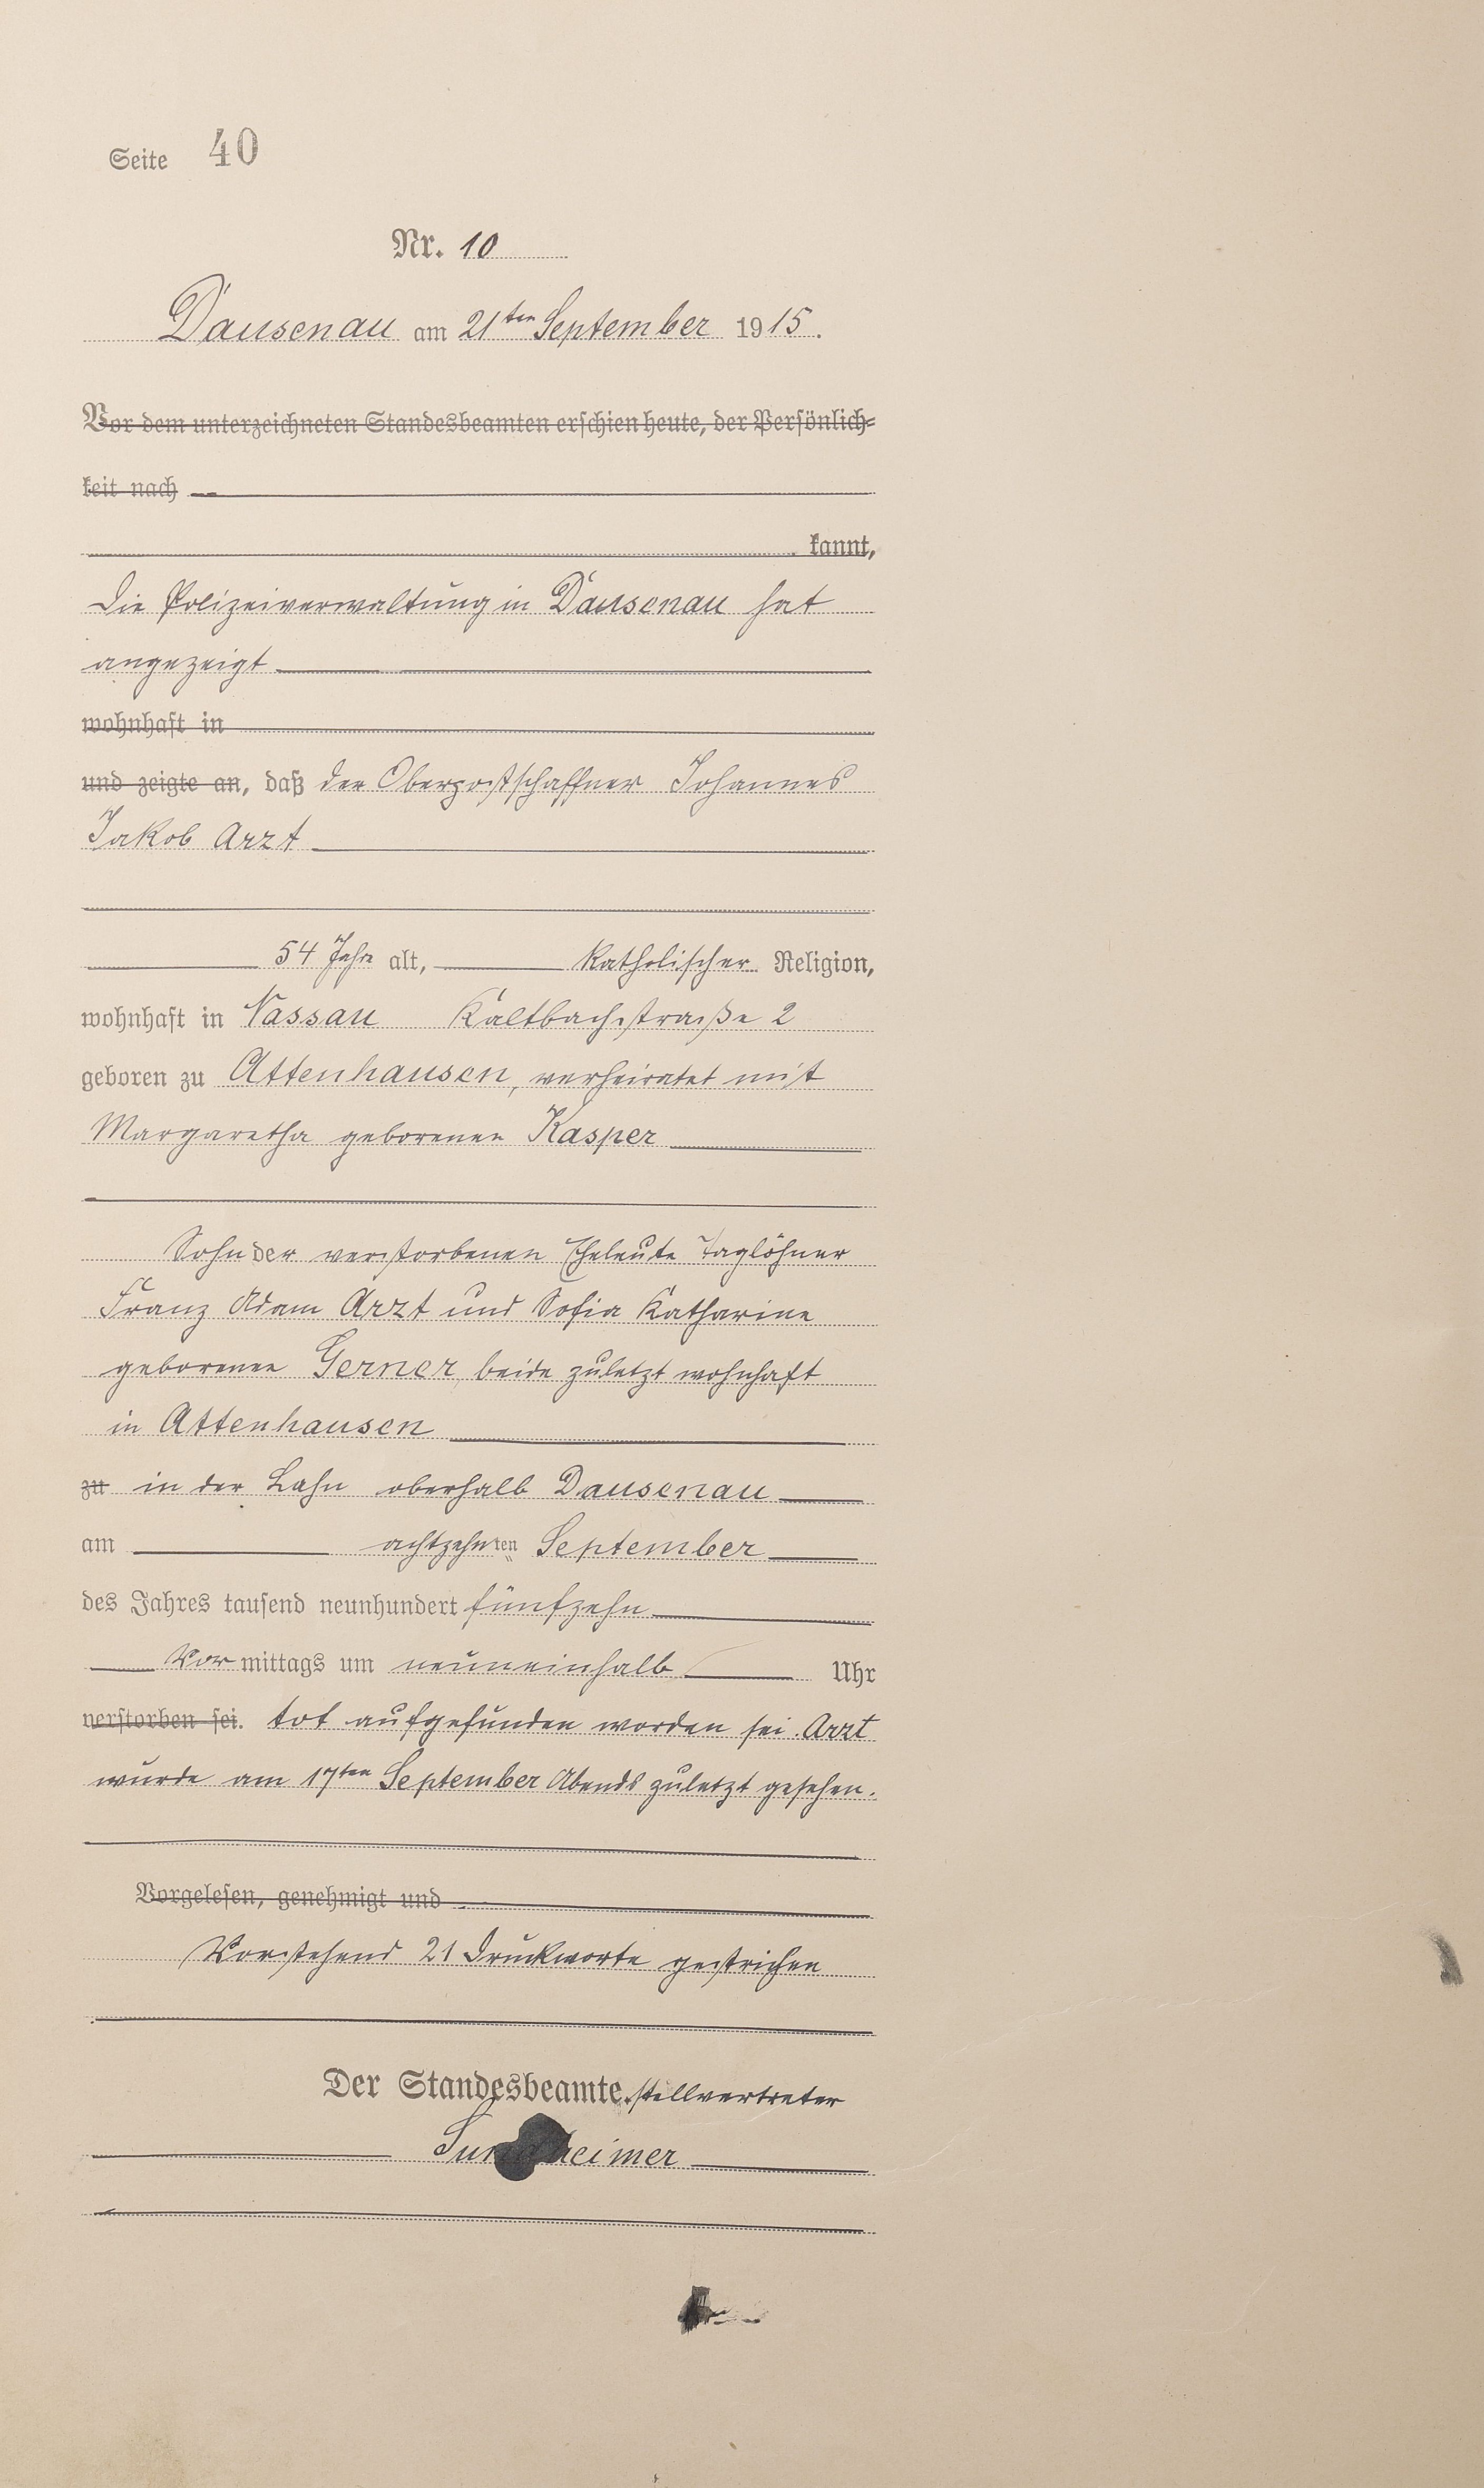 Seite 40
Nr. 10
Dausenau am 21ten September 1915.
Vor dem unterzeichneten Standesbeamten erschien heute, der Persönlich-
keit nach
kannt,
Die Polizeiverwaltung in Dausenau hat
angezeigt
wohnhaft in
und zeigte an, daß der Oberpostschaffner Johannes
Jakob Arzt
54 Jahre alt, katholischer Religion,
wohnhaft in Nassau Kaltbachstraße 2
geboren zu Attenhausen, verheiratet mit
Margaretha geborenen Kasper
Sohn der verstorbenen Eheleute Taglöhner
Franz Adam Arzt und Sofia Katharine
geborenen Gerner, beide zuletzt wohnhaft
in Attenhausen
zu in der Lahn oberhalb Dausenau
am achtzehnten September
des Jahres tausend neunhundert fünfzehn
Vormittags um neuneinhalb Uhr
verstorben sei. tot aufgefunden worden sei. Arzt
wurde am 17ten September Abends zuletzt gesehen.
Vorgelesen, genehmigt und
Vorstehend 21 Druckworte gestrichen
Der Standesbeamte.stellvertreter